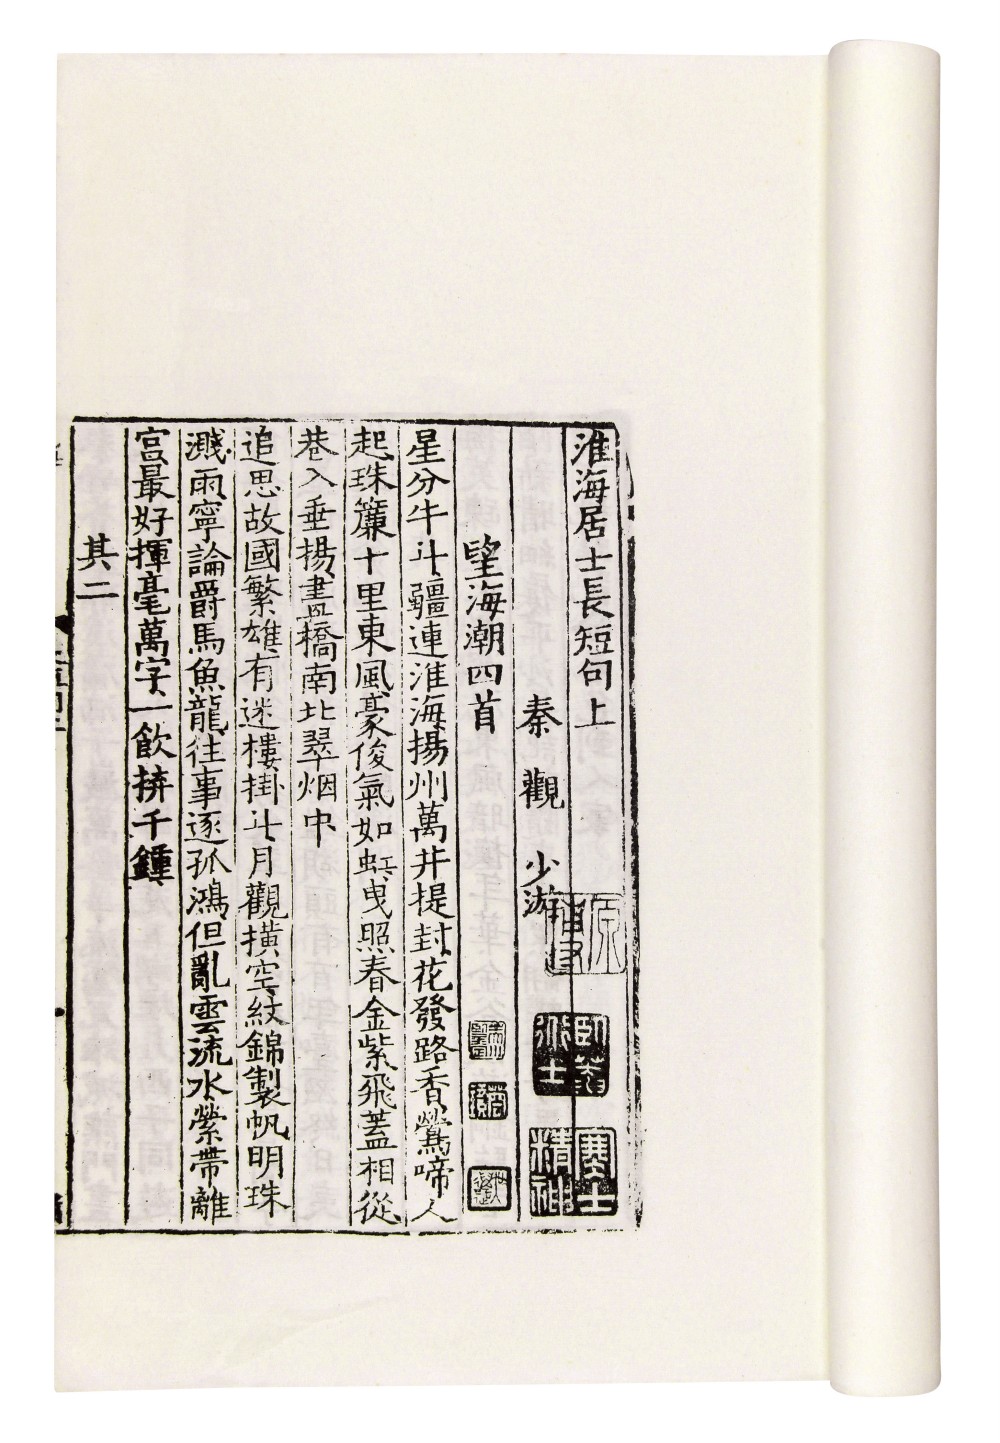 淮海居士長短句上
秦觀 少游
望海潮四首
星分牛斗疆連淮海揚州萬井提封花發路香鶯啼人
起珠簾十里東風豪俊氣如虹曳照春金紫飛蓋相從
巷入垂楊畫橋南北翠烟中
追思故國繁雄有迷樓掛斗月觀橫空紋錦製帆明珠
濺雨寧論爵馬魚龍往事逐孤鴻但亂雲流水縈帶離
宮最好揮毫萬字一飲拚千鍾
其二